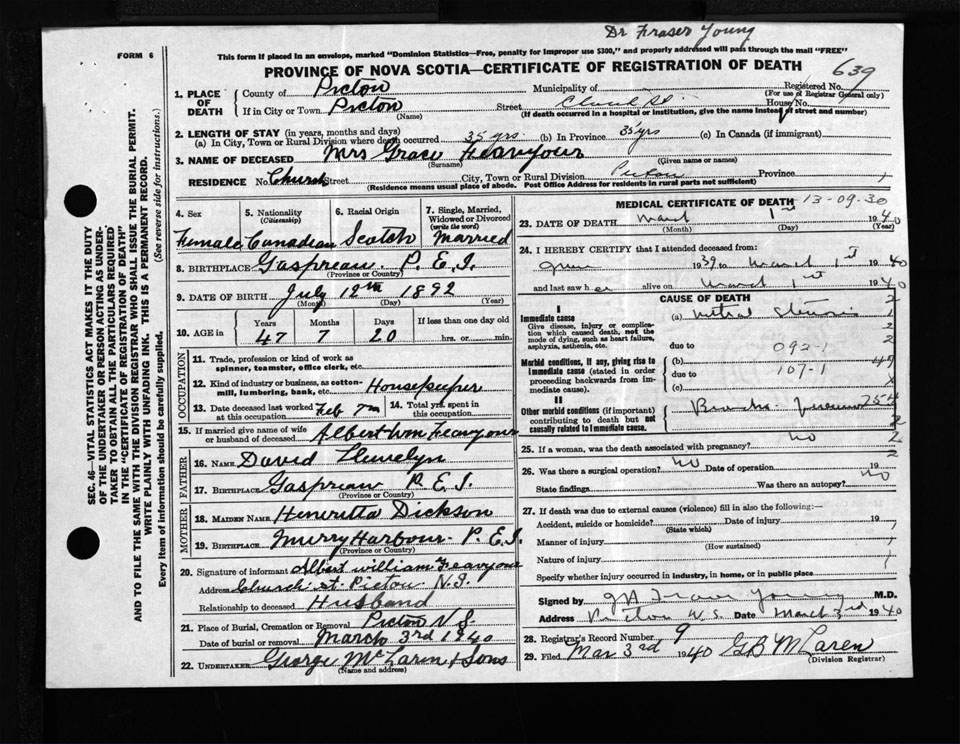 Dr Fraser Young
FORM 6
This form if placed in an envelope, marked "Dominion Statistics—Free, penalty for improper use $300," and properly addressed will pass through the mail "FREE"
PROVINCE OF NOVA SCOTIA—CERTIFICATE OF REGISTRATION OF DEATH
639
1. PLACE OF DEATH
County of Pictou Municipality of Registered No.
(For use of Registrar General only)
If in City or Town Pictou Street House No.
(Name) (If death occurred in a hospital or institution, give the name instead of street and number)
2. LENGTH OF STAY (in years, months and days)
(a) In City, Town or Rural Division where death occurred 35 yrs. (b) In Province 35 yrs (c) In Canada (if immigrant)
3. NAME OF DECEASED Mrs Grace Feavyour
(Surname) (Given name or names)
RESIDENCE No. Church Street City, Town or Rural Division Pictou Province
(Residence means usual place of abode. Post Office Address for residents in rural parts not sufficient)
4. Sex
Female
5. Nationality
(Citizenship)
Canadian
6. Racial Origin
Scotch
7. Single, Married, Widowed or Divorced
(write the word)
Married
8. BIRTHPLACE Gaspreau P.E.I.
(Province or Country)
9. DATE OF BIRTH July 12th 1892
(Month) (Day) (Year)
10. AGE in
Years Months Days If less than one day old
47 7 20 hrs. or min.
OCCUPATION
11. Trade, profession or kind of work as spinner, teamster, office clerk, etc.
12. Kind of industry or business, as cotton-mill, lumbering, bank, etc. Housekeeper
13. Date deceased last worked at this occupation Feb 7th
14. Total yrs. spent in this occupation
15. If married give name of wife or husband of deceased Albert Wm Feavyour
FATHER
16. NAME David Llewelyn
17. BIRTHPLACE Gaspreau P.E.I.
(Province or Country)
MOTHER
18. MAIDEN NAME Henerietta Dickson
19. BIRTHPLACE Murry Harbour P.E.I
(Province or Country)
20. Signature of informant Albert William Feavyour
Address Church St. Pictou N.S.
Relationship to deceased Husband
21. Place of Burial, Cremation or Removal Pictou N.S.
Date of burial or removal March 3rd 1940
22. UNDERTAKER George McLaren & Sons
(Name and address)
MEDICAL CERTIFICATE OF DEATH 13-09-30
23. DATE OF DEATH March 1st 1940
(Month) (Day) (Year)
24. I HEREBY CERTIFY that I attended deceased from:
1939 to March 1st 1940
and last saw her alive on March 1st 1940
CAUSE OF DEATH
I
Immediate cause
Give disease, injury or complication which caused death, not the mode of dying, such as heart failure, asphyxia, asthenia, etc.
(a) Mitral Stenosis
due to 092-1
Morbid conditions, if any, giving rise to immediate cause (stated in order proceeding backwards from immediate cause).
(b)
due to 107-1
(c)
II
Other morbid conditions (if important) contributing to death but not causally related to immediate cause.
25. If a woman, was the death associated with pregnancy? no
26. Was there a surgical operation? no Date of operation 19
State findings Was there an autopsy? no
27. If death was due to external causes (violence) fill in also the following:—
Accident, suicide or homicide? Date of injury 19
(State which)
Manner of injury
(How sustained)
Nature of injury
Specify whether injury occurred in industry, in home, or in public place
Signed by Fraser Young M.D.
Address Pictou N.S. Date March 3rd 1940
28. Registrar's Record Number 9
29. Filed Mar 3rd 1940 G B McLaren
(Division Registrar)
SEC. 46—VITAL STATISTICS ACT MAKES IT THE DUTY
OF THE UNDERTAKER OR PERSON ACTING AS UNDER-
TAKER TO OBTAIN ALL THE PARTICULARS REQUIRED
IN THE "CERTIFICATE OF REGISTRATION OF DEATH"
AND TO FILE THE SAME WITH THE DIVISION REGISTRAR WHO SHALL ISSUE THE BURIAL PERMIT.
WRITE PLAINLY WITH UNFADING INK. THIS IS A PERMANENT RECORD.
Every item of information should be carefully supplied. (See reverse side for instructions.)